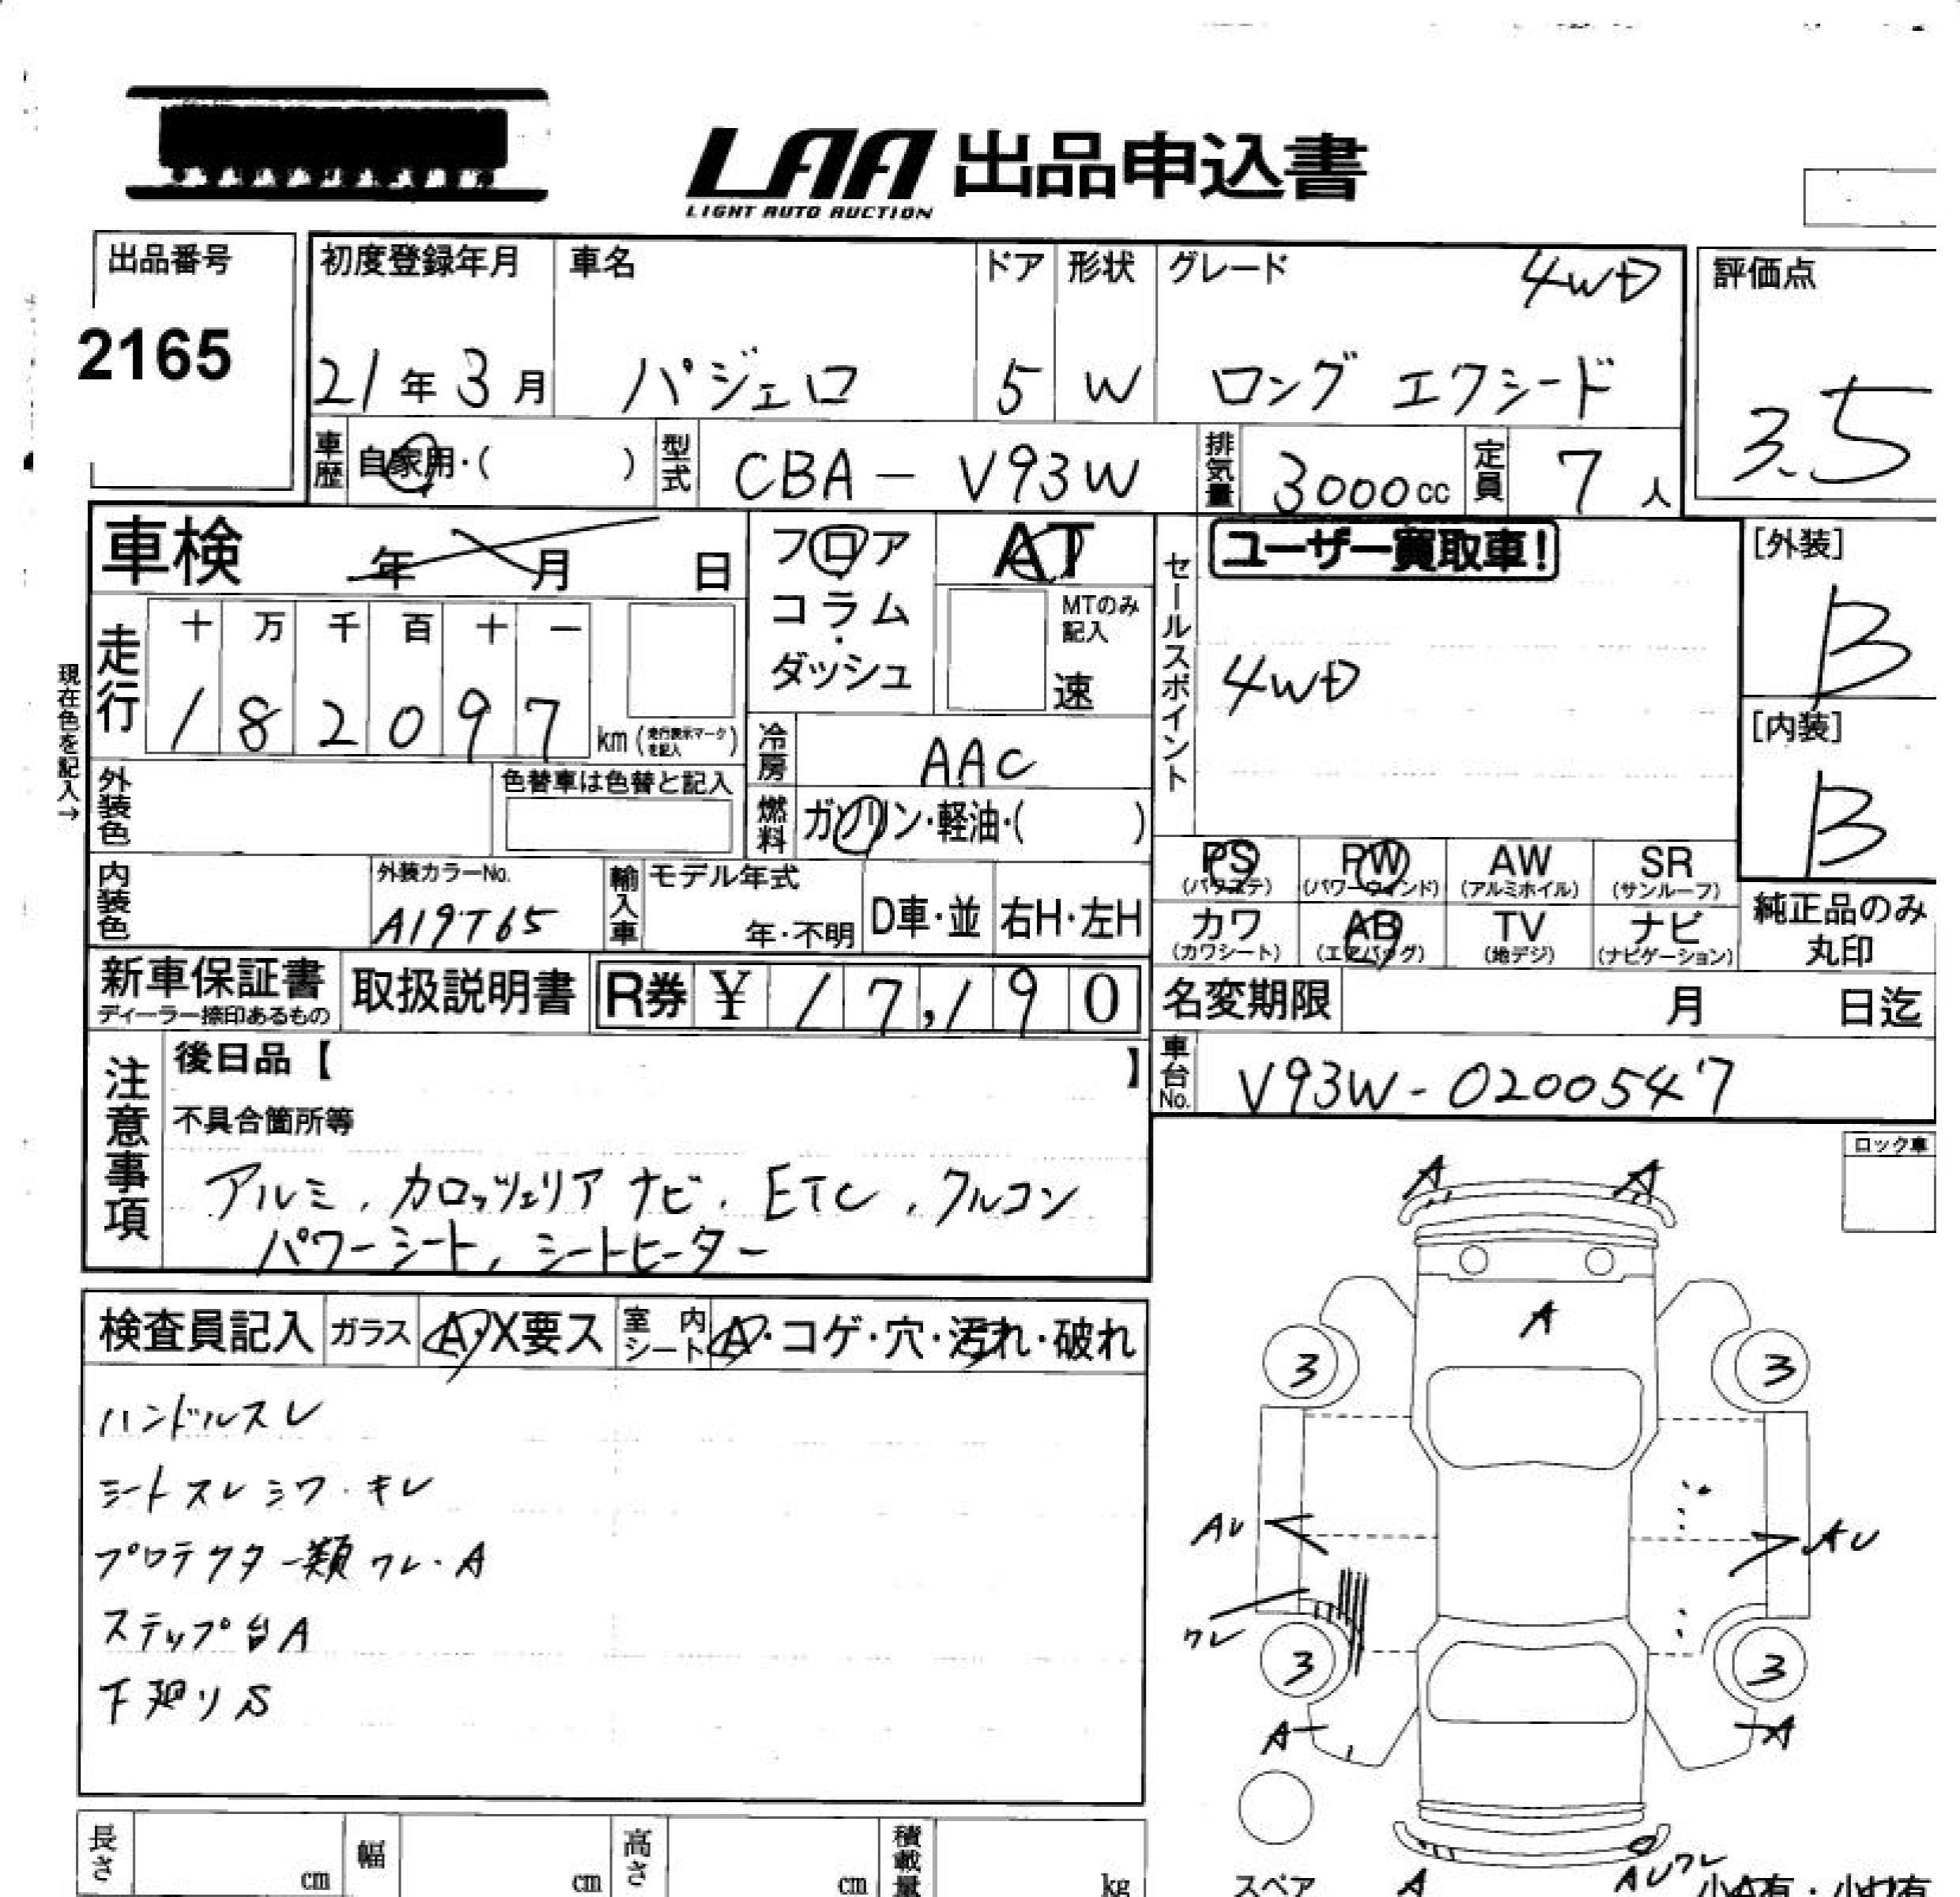 LAA 出品申込書
LIGHT AUTO AUCTION
出品番号
2165
初度登録年月 車名 ドア 形状 グレード 4WD
21年3月 パジェロ 5 W ロング エクシード
評価点
3.5
車歴 自家用・( ) 型式 CBA-V93W 排気量 3000cc 定員 7人
車検 年 月 日
フロア・コラム・ダッシュ
AT
MTのみ記入
速
セールスポイント
ユーザー買取車!
4WD
[外装]
B
[内装]
B
現在色を記入→
走行 十 万 千 百 十 一
182097 km (走行表示マークを記入)
冷房 AAC
外装色 色替車は色替と記入
燃料 ガソリン・軽油・( )
内装色 外装カラーNo.
A19T65
輸入車 モデル年式
年・不明 D車・並 右H・左H
PS (パワステ) PW (パワーウィンド) AW (アルミホイル) SR (サンルーフ)
カワ (カワシート) AB (エアバッグ) TV (地デジ) ナビ (ナビゲーション)
純正品のみ
丸印
新車保証書 取扱説明書 R券 ¥ 17,190
ディーラー捺印あるもの
名変期限 月 日迄
車台No. V93W-0200547
注意事項
後日品【 】
不具合箇所等
アルミ、カロッツェリアナビ、ETC、クルコン
パワーシート、シートヒーター
ロック車
検査員記入 ガラス A・X要ス 室内シート A・コゲ・穴・汚れ・破れ
ハンドルスレ
シートスレシワ・キレ
プロテクター類ワレ・A
ステップ台A
下廻りS
A A
A
3 3
AU AU
ワレ
3 3
A A
A AUワレ
スペア
長さ cm 幅 cm 高さ cm 積載量 kg